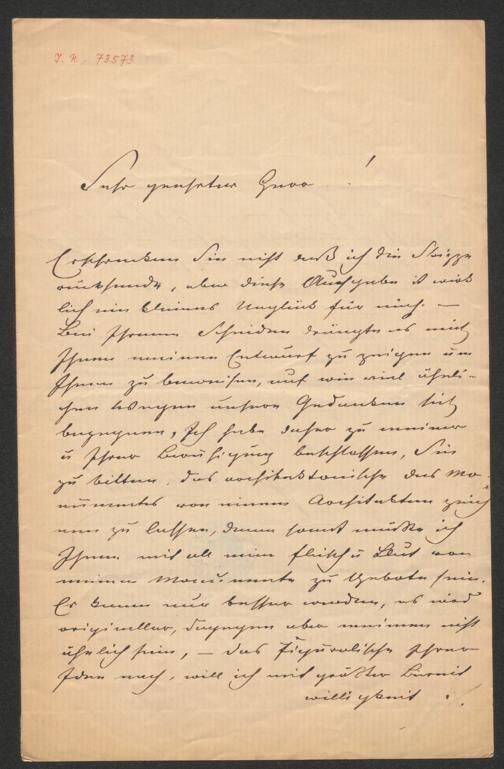 I. N. 73573
Sehr geehrter Herr !
Erschrecken Sie nicht daß ich die Skizze
rücksende, aber diese Aufgabe ist wirk
lich ein kleines Unglück für mich. —
Bei Ihrem Scheiden drängte es mich
Ihnen meinen Entwurf zu zeigen um
Ihnen zu beweisen, auf wie viel ähnli-
chen Wegen unsere Gedanken sich
begegnen, Ich habe daher zu meiner
u Ihrer Beruhigung beschlossen, Sie
zu bitten, das architektonische des Mo
numentes von einem Architekten zeich
nen zu lassen, denn sonst müßte ich
Ihnen mit all mein Fleisch u Blut von
meinem Monumente zu Gebote sein.
Es kann nur besser werden, es wird
origineller, dagegen aber meinem nicht
ähnlich sein, — das Figuralische Ihrer
Idee nach, will ich mit größter Bereit
willigkeit